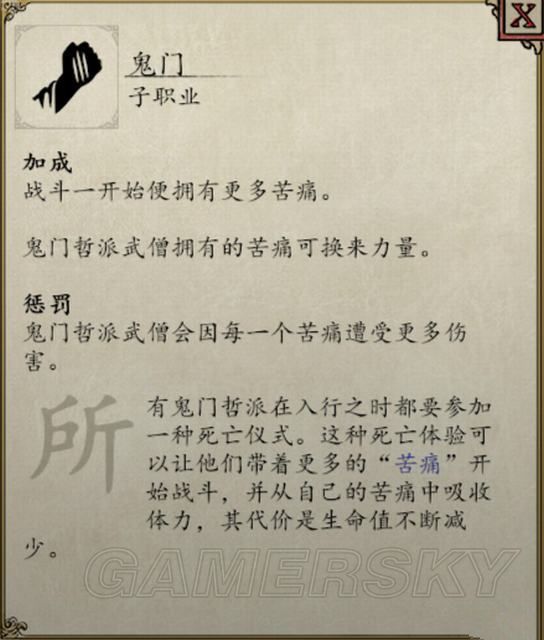 X
鬼门
子职业
加成
战斗一开始便拥有更多苦痛。
鬼门哲派武僧拥有的苦痛可换来力量。
惩罚
鬼门哲派武僧会因每一个苦痛遭受更多伤
害。
所
有鬼门哲派在入行之时都要参加
一种死亡仪式。这种死亡体验可
以让他们带着更多的“苦痛”开
始战斗，并从自己的苦痛中吸收
体力，其代价是生命值不断减
少。
GAMERSKY